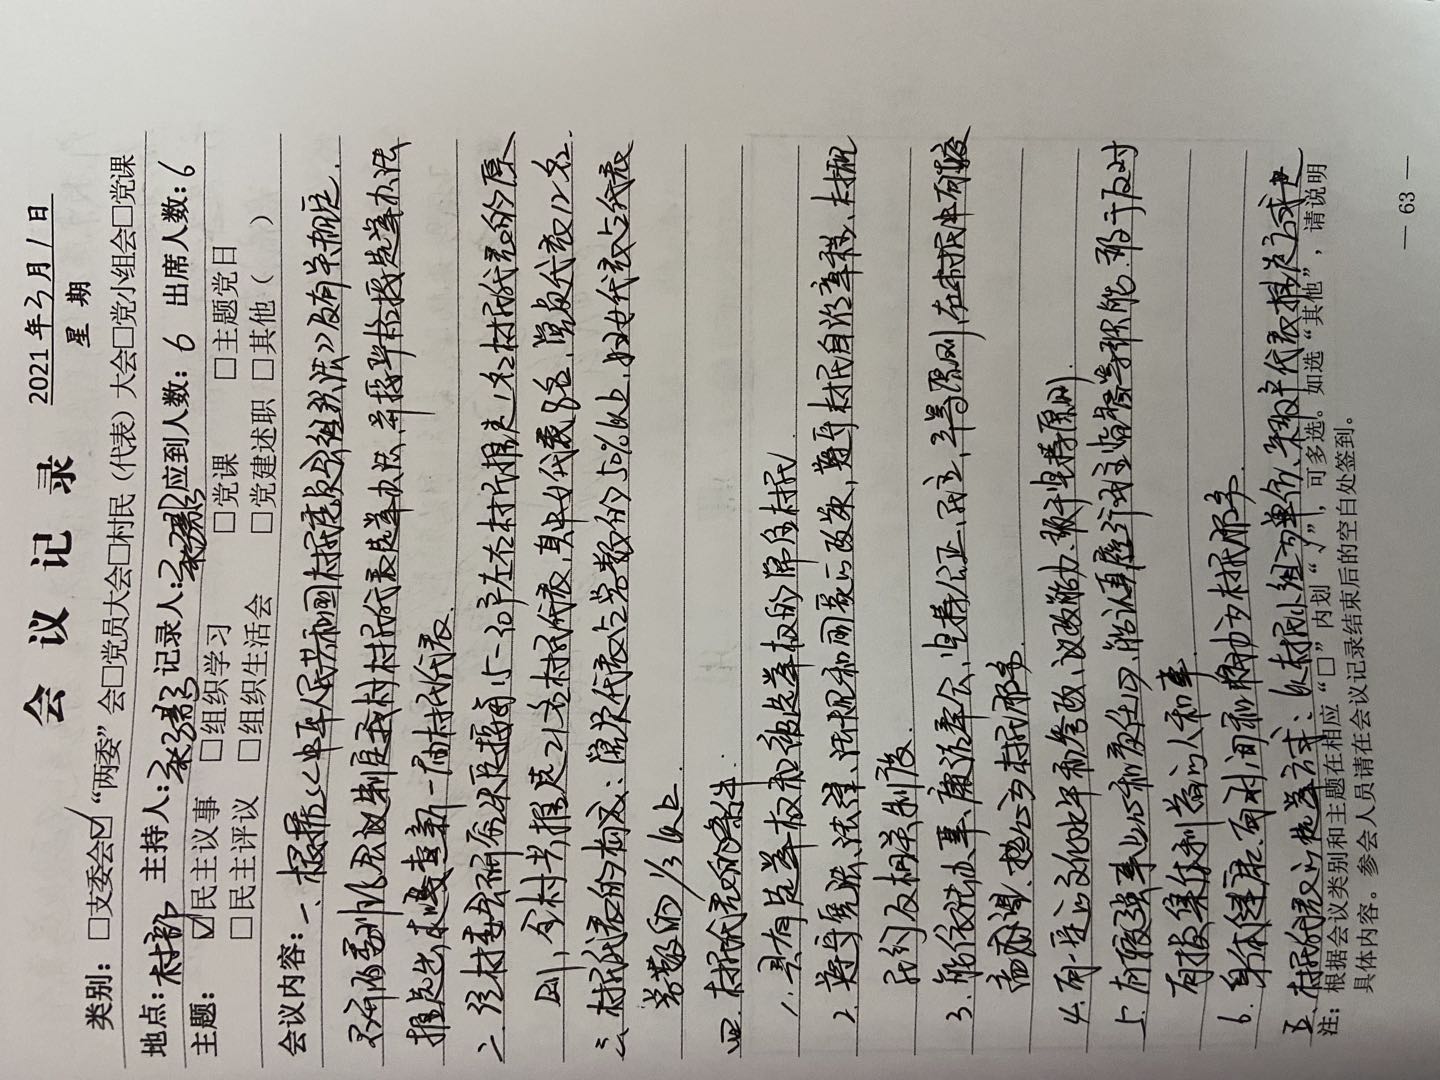 会议记录
2021年3月1日
星期
类别：□支委会☑“两委”会□党员大会□村民（代表）大会□党小组会□党课
地点：村部 主持人： 记录人： 应到人数：6 出席人数：6
主题：☑民主议事 □组织学习 □党课 □主题党日
□民主评议 □组织生活会 □党建述职 □其他（ ）
会议内容：一、根据《中华人民共和国村民委员会组织法》及有关规定
村两委 制定我村村民代表选举办法，并按严格按选举办法
推选出 新一届村民代表.
二、经村委会研究决定按每5—15户左右村民推选1名村民代表的原
则，全村共推选21名村民代表，其中女代表8名，党员代表12名.
三、村民代表的构成：党员代表占总数的50%以上，妇女代表占代表
总数的1/3以上.
四、村民代表的条件.
1、具有选举权和被选举权的常住村民.
2、遵守宪法、法律、法规和国家的政策，遵守村民自治章程、村规
民约及相关制度.
3、能依法办事、廉洁奉公、坚持公正、公立、平等原则，在村民中有较
高威调、热心为村民服务.
4、有一定的文化水平和参政、议政能力、敢于坚持原则.
5、有较强事业心和责任心，能认真履行民主监督等职能，敢于反对
有损集体利益的人和事.
6、身体健康、有时间和精力为村民服务.
五、村民代表的推选方式：以村民小组为单位，采取户代表推选方式进
注：根据会议类别和主题在相应“□”内划“√”，可多选。如选“其他”，请说明
具体内容。参会人员请在会议记录结束后的空白处签到。
— 63 —